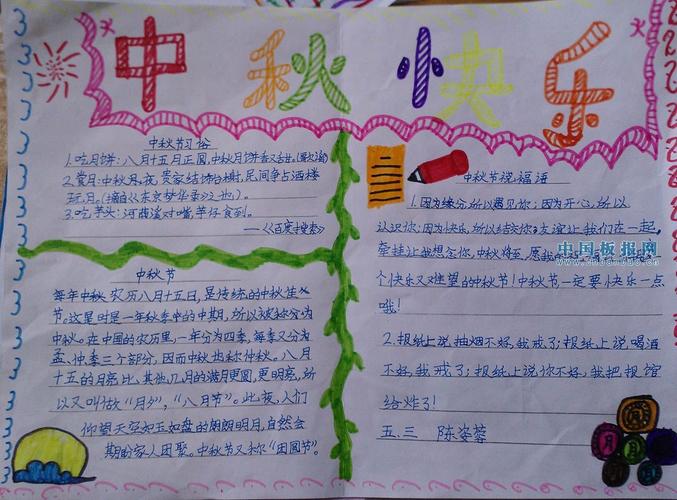 中秋快乐
中秋节习俗
1.吃月饼：八月十五月正圆，中秋月饼香又甜。(歌谣)
2.赏月：中秋月夜，贵家结饰台榭，民间争占酒楼
玩月。(摘自《东京梦华录》也)。
3.吃芋头：河蒟溪对嘴，芋仔食到。
——《百度搜索》
中秋节
每年中秋农历八月十五日，是传统的中秋佳
节。这是时是一年秋季中的中期，所以被称它为
中秋。在中国的农历里，一年分为四季，每季又分为
孟、仲、季三个部分，因而中秋也称仲秋。八月
十五的月亮比其他几月的满月更圆，更明亮，所
以又叫做“月夕”，“八月节”。此夜，人们
仰望天空如玉如盘的朗朗明月，自然会
期盼家人团聚。中秋节又称“团圆节”。
中秋节说福语
1.因为缘分所以遇见你；因为开心，所以
认识你；因为快乐，所以结交你；友谊让我们在一起，
牵挂让我想念你，中秋将至，愿我
个快乐又难望的中秋节！中秋节一定要快乐一点
哦！
2.报纸上说抽烟不好，我戒了；报纸上说喝酒
不好，我戒了；报纸上说你不好，我把报馆
给炸了！
五.三 陈姿蓉
中国板报网
月 月